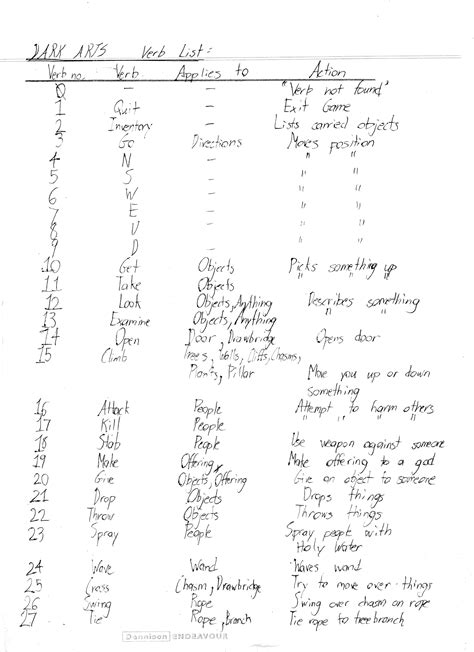 DARK ARTS Verb List:
Verb no. Verb Applies to Action
0 - - "Verb not found"
1 Quit - Exit Game
2 Inventory - Lists carried objects
3 Go Directions Moves position
4 N - " "
5 S - "
6 W - "
7 E - "
8 U - "
9 D - " "
10 Get Objects Picks something up
11 Take Objects " " "
12 Look Objects, Anything Describes something
13 Examine Objects, Anything " "
14 Open Door, Drawbridge Opens door
15 Climb Trees, Walls, Cliffs, Chasms,
Plants, Pillar Move you up or down
something
16 Attack People Attempt to harm others
17 Kill People " "
18 Stab People Use weapon against someone
19 Make Offering Make offering to a god
20 Give Objects, Offering Give an object to someone
21 Drop Objects Drops things
22 Throw Objects Throws things
23 Spray People Spray people with
Holy Water
24 Wave Wand Waves wand
25 Cross Chasm, Drawbridge Try to move over things
26 Swing Rope Swing over chasm on rope
27 Tie Rope, Branch Tie rope to tree branch